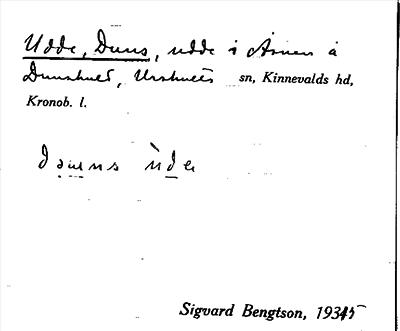 Udde, Duns, udde i Åsnen å
Dunshult, Urshults sn, Kinnevalds hd,
Kronob. l.
Sigvard Bengtson, 1935